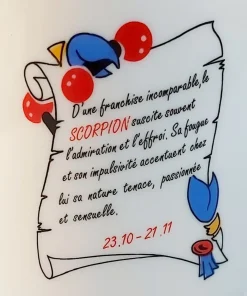 D'une franchise incomparable, le
SCORPION suscite souvent
l'admiration et l'effroi. Sa fougue
et son impulsivité accentuent chez
lui sa nature tenace, passionnée
et sensuelle.
23.10 - 21.11